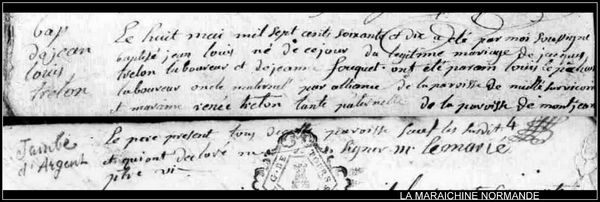 bap
de jean
louis
treton
Le huit mai mil sept cent soixante et dix a été par moi soussigné
baptisé jean louis né de ce jour du legitime mariage de jacques
treton laboureur et de jeanne fouquet ont été parain louis
laboureur oncle maternel par alliance de la paroisse de nuillé sur vicoin
et maraine renée treton tante paternelle de la paroisse de montjean
Jambe
d'Argent
Le pere present tous de cette paroisse sauf les susdits
et qui ont declaré ne signer m lemarié
ptre vic
G. DE TOURS
LA MARAICHINE NORMANDE